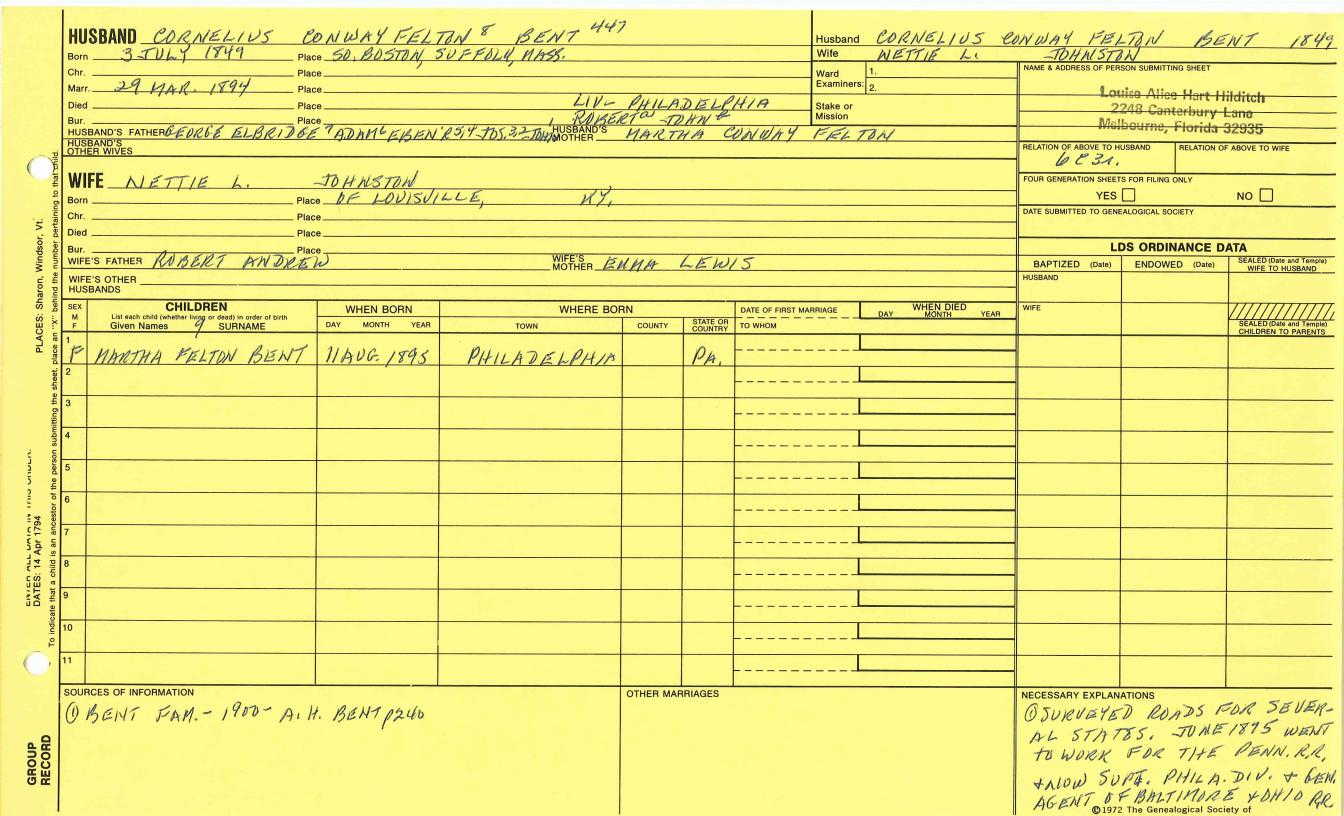 HUSBAND CORNELIUS CONWAY FELTON 8 BENT 447
Born 3 JULY 1849 Place SO. BOSTON, SUFFOLK, MASS.
Chr. Place
Marr. 29 MAR. 1894 Place
Died Place LIV- PHILADELPHIA
Bur. Place
HUSBAND'S FATHER GEORGE ELBRIDGE 7 ADAM 6 EBEN'R 5,4 JOS. 3,2 JOHN
ROBERT JOHN
HUSBAND'S MOTHER MARTHA CONWAY FELTON
HUSBAND'S OTHER WIVES
Husband CORNELIUS CONWAY FELTON BENT 1849
Wife NETTIE L. JOHNSTON
Ward Examiners: 1.
2.
Stake or Mission
NAME & ADDRESS OF PERSON SUBMITTING SHEET
Louise Alice Hart Hilditch
2248 Canterbury Lane
Melbourne, Florida 32935
RELATION OF ABOVE TO HUSBAND RELATION OF ABOVE TO WIFE
6C3r.
FOUR GENERATION SHEETS FOR FILING ONLY
YES NO
DATE SUBMITTED TO GENEALOGICAL SOCIETY
WIFE NETTIE L. JOHNSTON
Born Place OF LOUISVILLE, KY.
Chr. Place
Died Place
Bur. Place
WIFE'S FATHER ROBERT ANDREW
WIFE'S MOTHER EMMA LEWIS
WIFE'S OTHER HUSBANDS
LDS ORDINANCE DATA
BAPTIZED (Date) ENDOWED (Date) SEALED (Date and Temple) WIFE TO HUSBAND
HUSBAND
WIFE
SEALED (Date and Temple) CHILDREN TO PARENTS
SEX M F
CHILDREN
List each child (whether living or dead) in order of birth
Given Names 9 SURNAME
WHEN BORN
DAY MONTH YEAR
WHERE BORN
TOWN COUNTY STATE OR COUNTRY
DATE OF FIRST MARRIAGE
TO WHOM
WHEN DIED
DAY MONTH YEAR
1 F MARTHA FELTON BENT 11 AUG 1895 PHILADELPHIA PA.
2
3
4
5
6
7
8
9
10
11
SOURCES OF INFORMATION
① BENT FAM. - 1900 - A.H. BENT p240
OTHER MARRIAGES
NECESSARY EXPLANATIONS
① SURVEYED ROADS FOR SEVER-
AL STATES. JUNE 1875 WENT
TO WORK FOR THE PENN. R.R.
+ NOW SUPT. PHILA. DIV. + GEN.
AGENT OF BALTIMORE + OHIO RR
©1972 The Genealogical Society of
PLACES: Sharon, Windsor, Vt.
ENTER ALL DATA IN THIS ORDER:
DATES: 14 Apr 1794
To indicate that a child is an ancestor of the person submitting the sheet, place an "X" behind the number pertaining to that child.
GROUP
RECORD